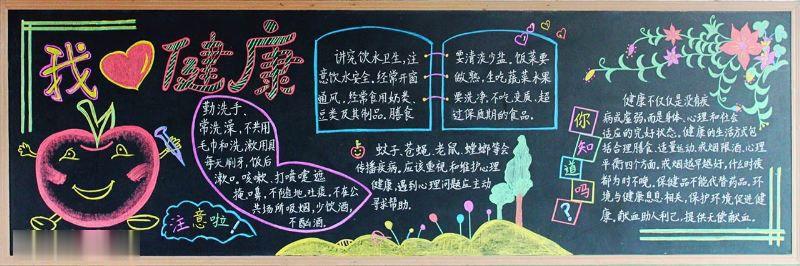 我健康
勤洗手、
常洗澡，不共用
毛巾和洗漱用具
每天刷牙，饭后
漱口。咳嗽、打喷嚏遮
掩口鼻，不随地吐痰，不在公
共场所吸烟，少饮酒，
不酗酒。
注意啦！
讲究饮水卫生，注
意饮水安全。经常开窗
通风。经常食用奶类、
豆类及其制品。膳食
要清淡少盐。饭菜要
做熟，生吃蔬菜水果
要洗净，不吃变质、超
过保质期的食品。
蚊子、苍蝇、老鼠、蟑螂等会
传播疾病。应该重视和维护心理
健康，遇到心理问题应主动
寻求帮助。
你知道吗？
健康不仅仅是没有疾
病或虚弱，而是身体、心理和社会
适应的完好状态。健康的生活方式包
括合理膳食、适量运动、戒烟限酒、心理
平衡四个方面。戒烟越早越好，什么时候
都为时不晚。保健品不能代替药品。环
境与健康息息相关，保护环境促进健
康。献血助人利己，提倡无偿献血。